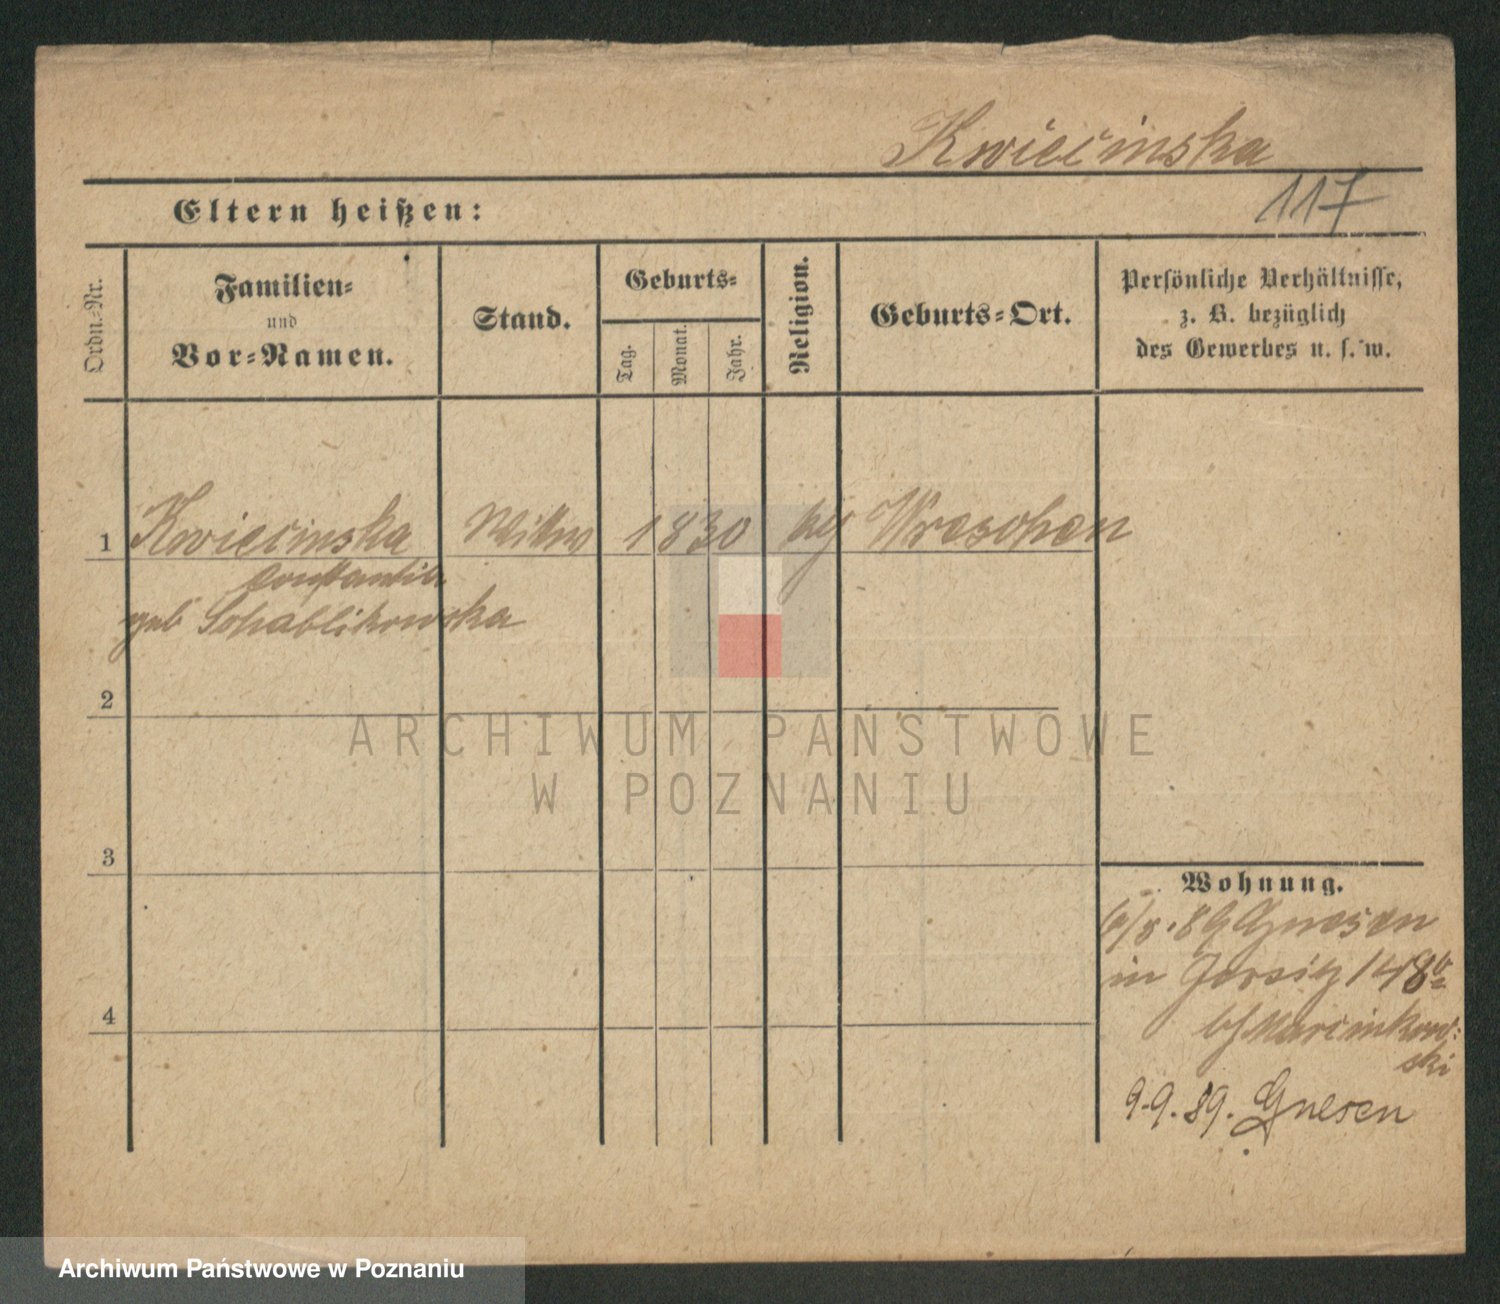 Kwiecinska
117
Eltern heißen:
Ordn.-Nr.
Familien-
und
Vor-Namen.
Stand.
Geburts-
Tag.
Monat.
Jahr.
Religion.
Geburts-Ort.
Persönliche Verhältnisse,
z. B. bezüglich
des Gewerbes u. s. w.
1 Kwiecinska Wittw 1830 Wreschen
Constantia
geb Schablikowska
2
3
4
Wohnung.
89 Gnesen
in Jersitz 148
b/ Marcinkow-
ski
9.9.89. Gnesen
ARCHIWUM PAŃSTWOWE
W POZNANIU
Archiwum Państwowe w Poznaniu